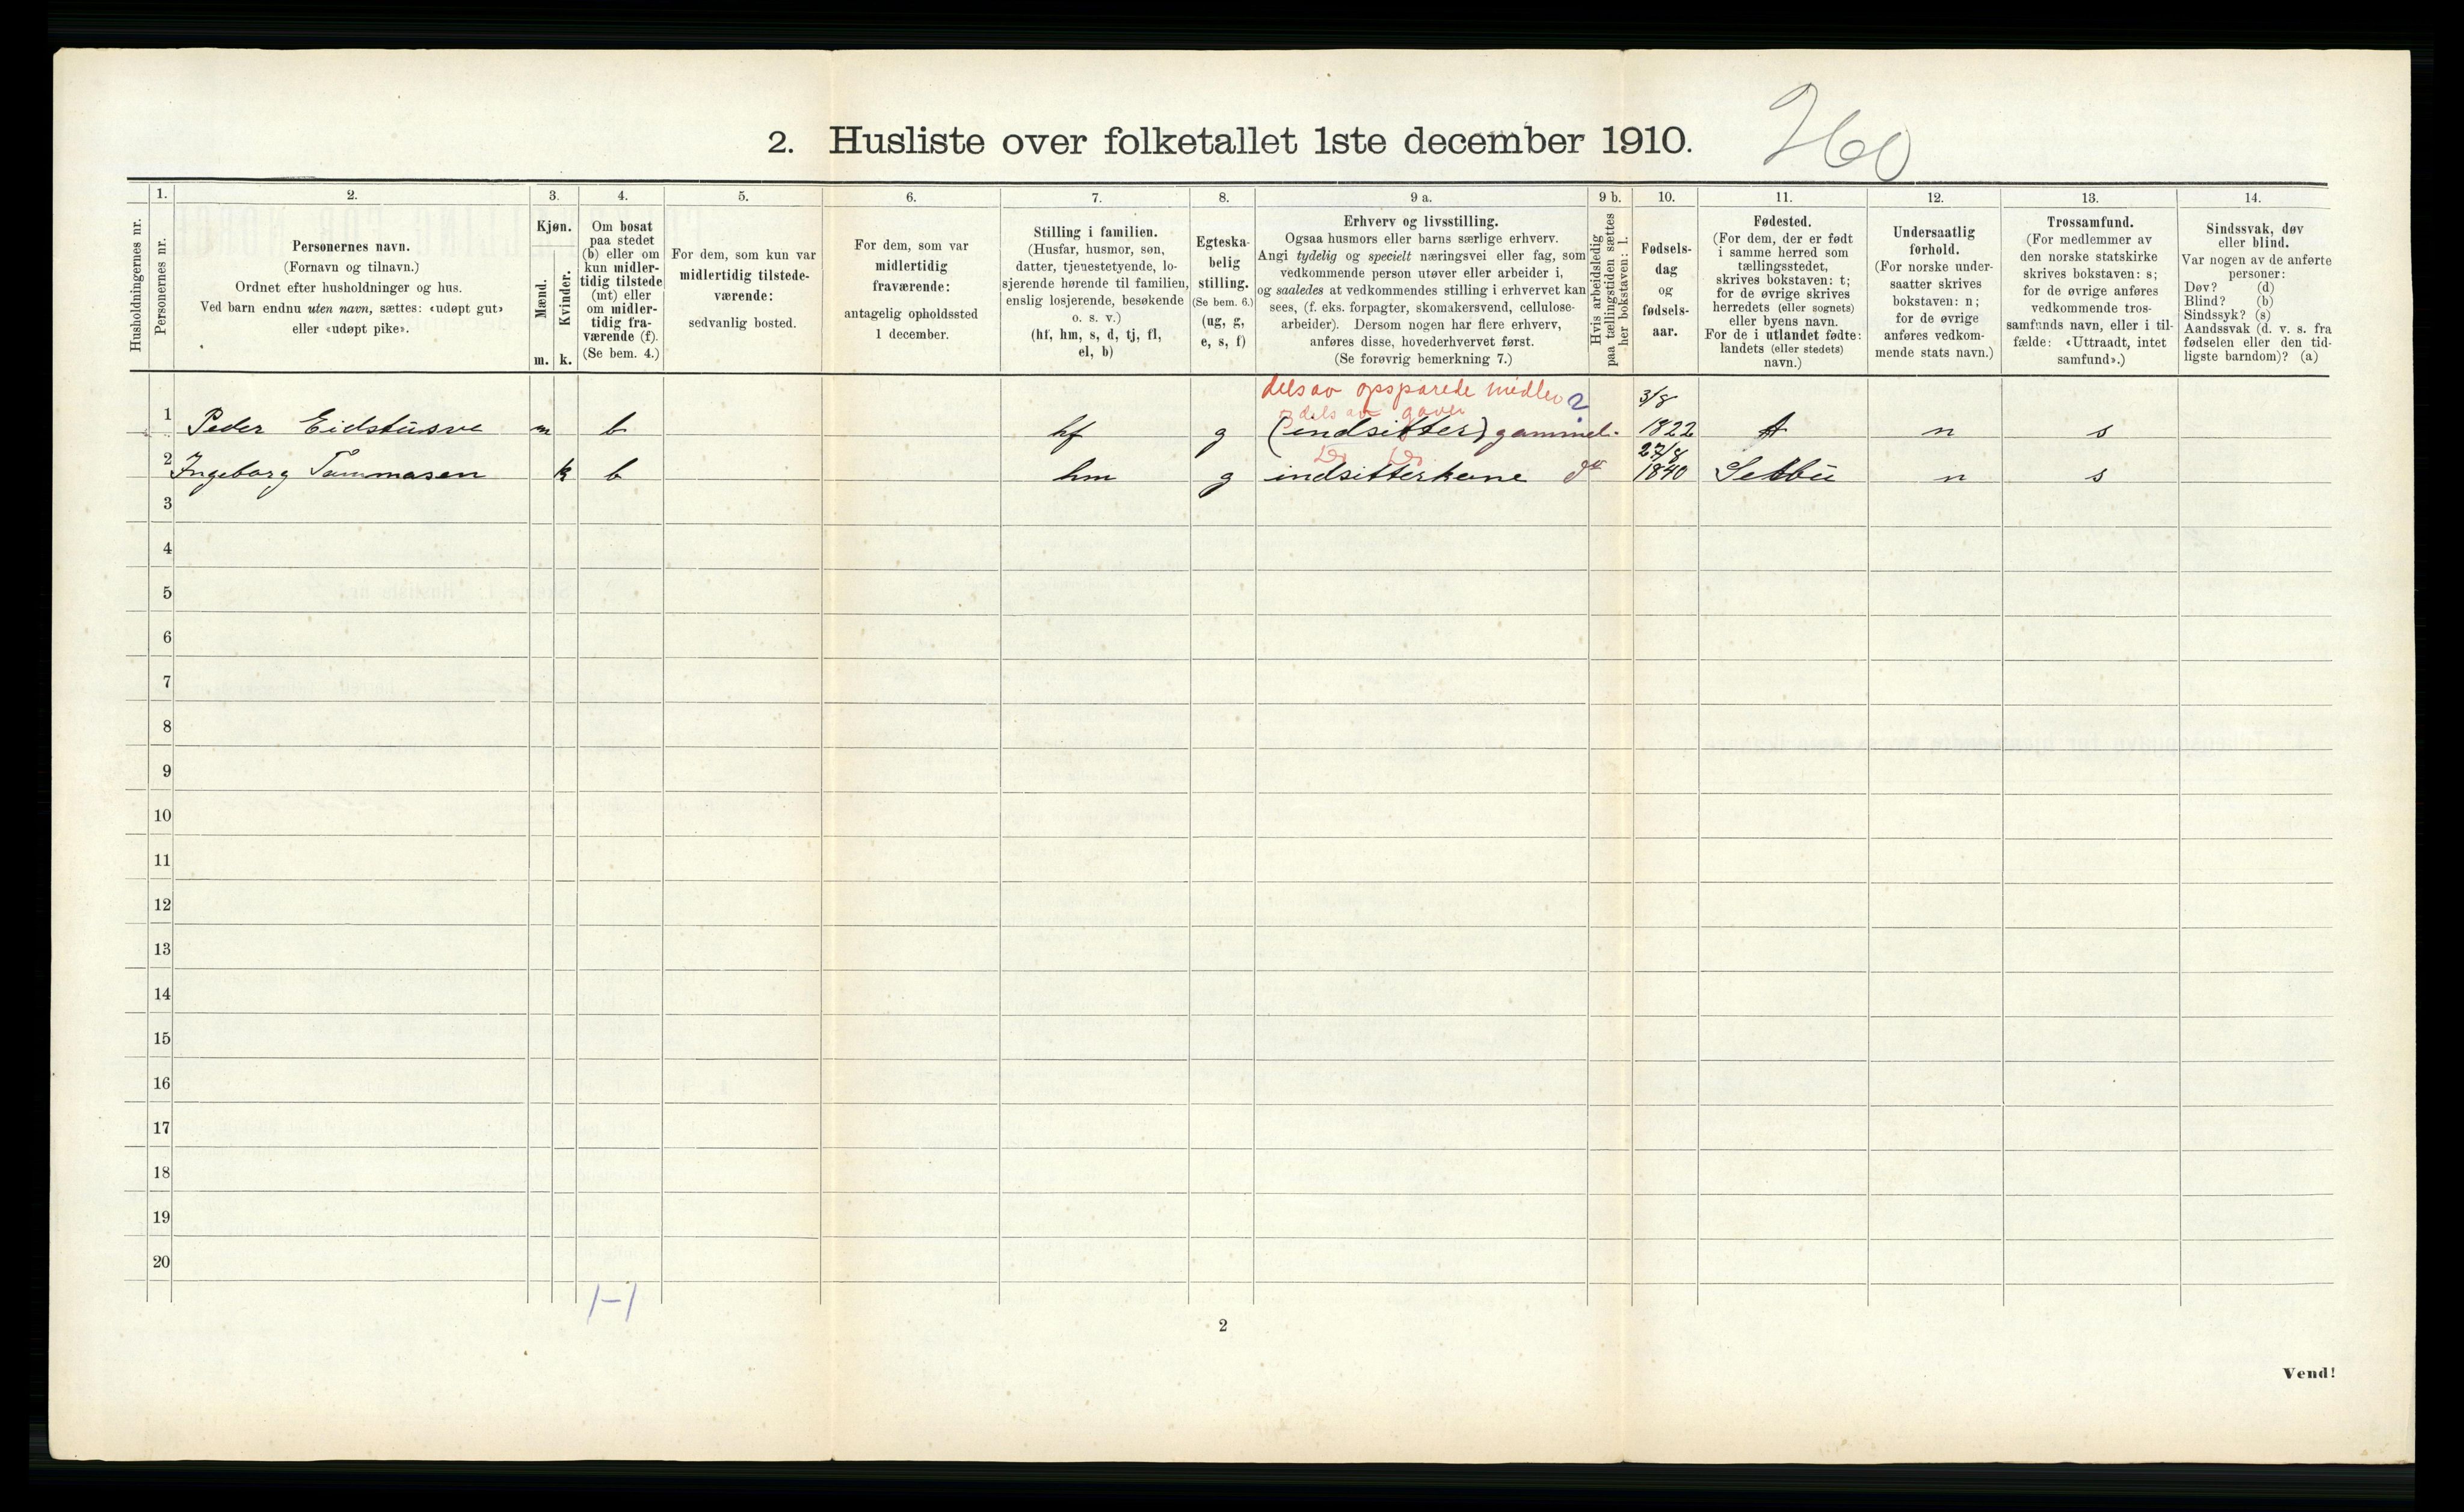 2. Husliste over folketallet 1ste december 1910.
260
1. 2. 3. 4. 5. 6. 7. 8. 9 a. 9 b. 10. 11. 12. 13. 14.
Husholdningernes nr.
Personernes nr.
Personernes navn.
(Fornavn og tilnavn.)
Ordnet efter husholdninger og hus.
Ved barn endnu uten navn, sættes: «udøpt gut»
eller «udøpt pike».
Kjøn.
Mænd.
Kvinder.
m. k.
Om bosat
paa stedet
(b) eller om
kun midler-
tidig tilstede
(mt) eller
om midler-
tidig fra-
værende (f).
(Se bem. 4.)
For dem, som kun var
midlertidig tilstede-
værende:
sedvanlig bosted.
For dem, som var
midlertidig
fraværende:
antagelig opholdssted
1 december.
Stilling i familien.
(Husfar, husmor, søn,
datter, tjenestetyende, lo-
sjerende hørende til familien,
enslig losjerende, besøkende
o. s. v.)
(hf, hm, s, d, tj, fl,
el, b)
Egteska-
belig
stilling.
(Se bem. 6.)
(ug, g,
e, s, f)
Erhverv og livsstilling.
Ogsaa husmors eller barns særlige erhverv.
Angi tydelig og specielt næringsvei eller fag, som
vedkommende person utøver eller arbeider i,
og saaledes at vedkommendes stilling i erhvervet kan
sees, (f. eks. forpagter, skomakersvend, cellulose-
arbeider). Dersom nogen har flere erhverv,
anføres disse, hovederhvervet først.
(Se forøvrig bemerkning 7.)
Hvis arbeidsledig
paa tællingstiden sættes
her bokstaven: l.
Fødsels-
dag
og
fødsels-
aar.
Fødested.
(For dem, der er født
i samme herred som
tællingsstedet,
skrives bokstaven: t;
for de øvrige skrives
herredets (eller sognets)
eller byens navn.
For de i utlandet fødte:
landets (eller stedets)
navn.)
Undersaatlig
forhold.
(For norske under-
saatter skrives
bokstaven: n;
for de øvrige
anføres vedkom-
mende stats navn.)
Trossamfund.
(For medlemmer av
den norske statskirke
skrives bokstaven: s;
for de øvrige anføres
vedkommende tros-
samfunds navn, eller i til-
fælde: «Uttraadt, intet
samfund».)
Sindssvak, døv
eller blind.
Var nogen av de anførte
personer:
Døv? (d)
Blind? (b)
Sindssyk? (s)
Aandssvak (d. v. s. fra
fødselen eller den tid-
ligste barndom)? (a)
dels av opsparede midler ?
dels av gaver
3/8
1 Peder Eidstusve m b hf g (indsitter) gammel. 1822 t n s
Do Do
27/8
2 Ingeborg Tommasen k b hm g indsitterkone do 1840 Selbu n s
3
4
5
6
7
8
9
10
11
12
13
14
15
16
17
18
19
20
1-1
2
Vend!